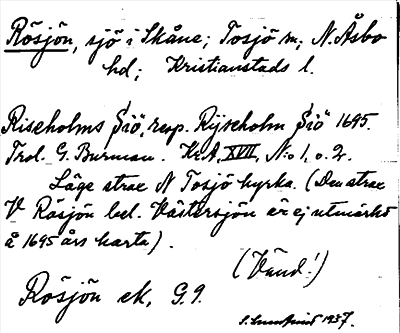 Rösjön, sjö i Skåne; Tosjö sn; N. Åsbo
hd; Kristianstads l.
Riseholms Siö, resp. Ryseholm Siö 1695.
Trol. G. Burman. Kr. A. XVII, N:o 1, o. 2.
Läge strax N Tosjö kyrka. (Den strax
V Rösjön bel. Västersjön är ej utmärkt
å 1695 års karta).
(Vänd!)
Rösjön ek, G. 9.
1937.